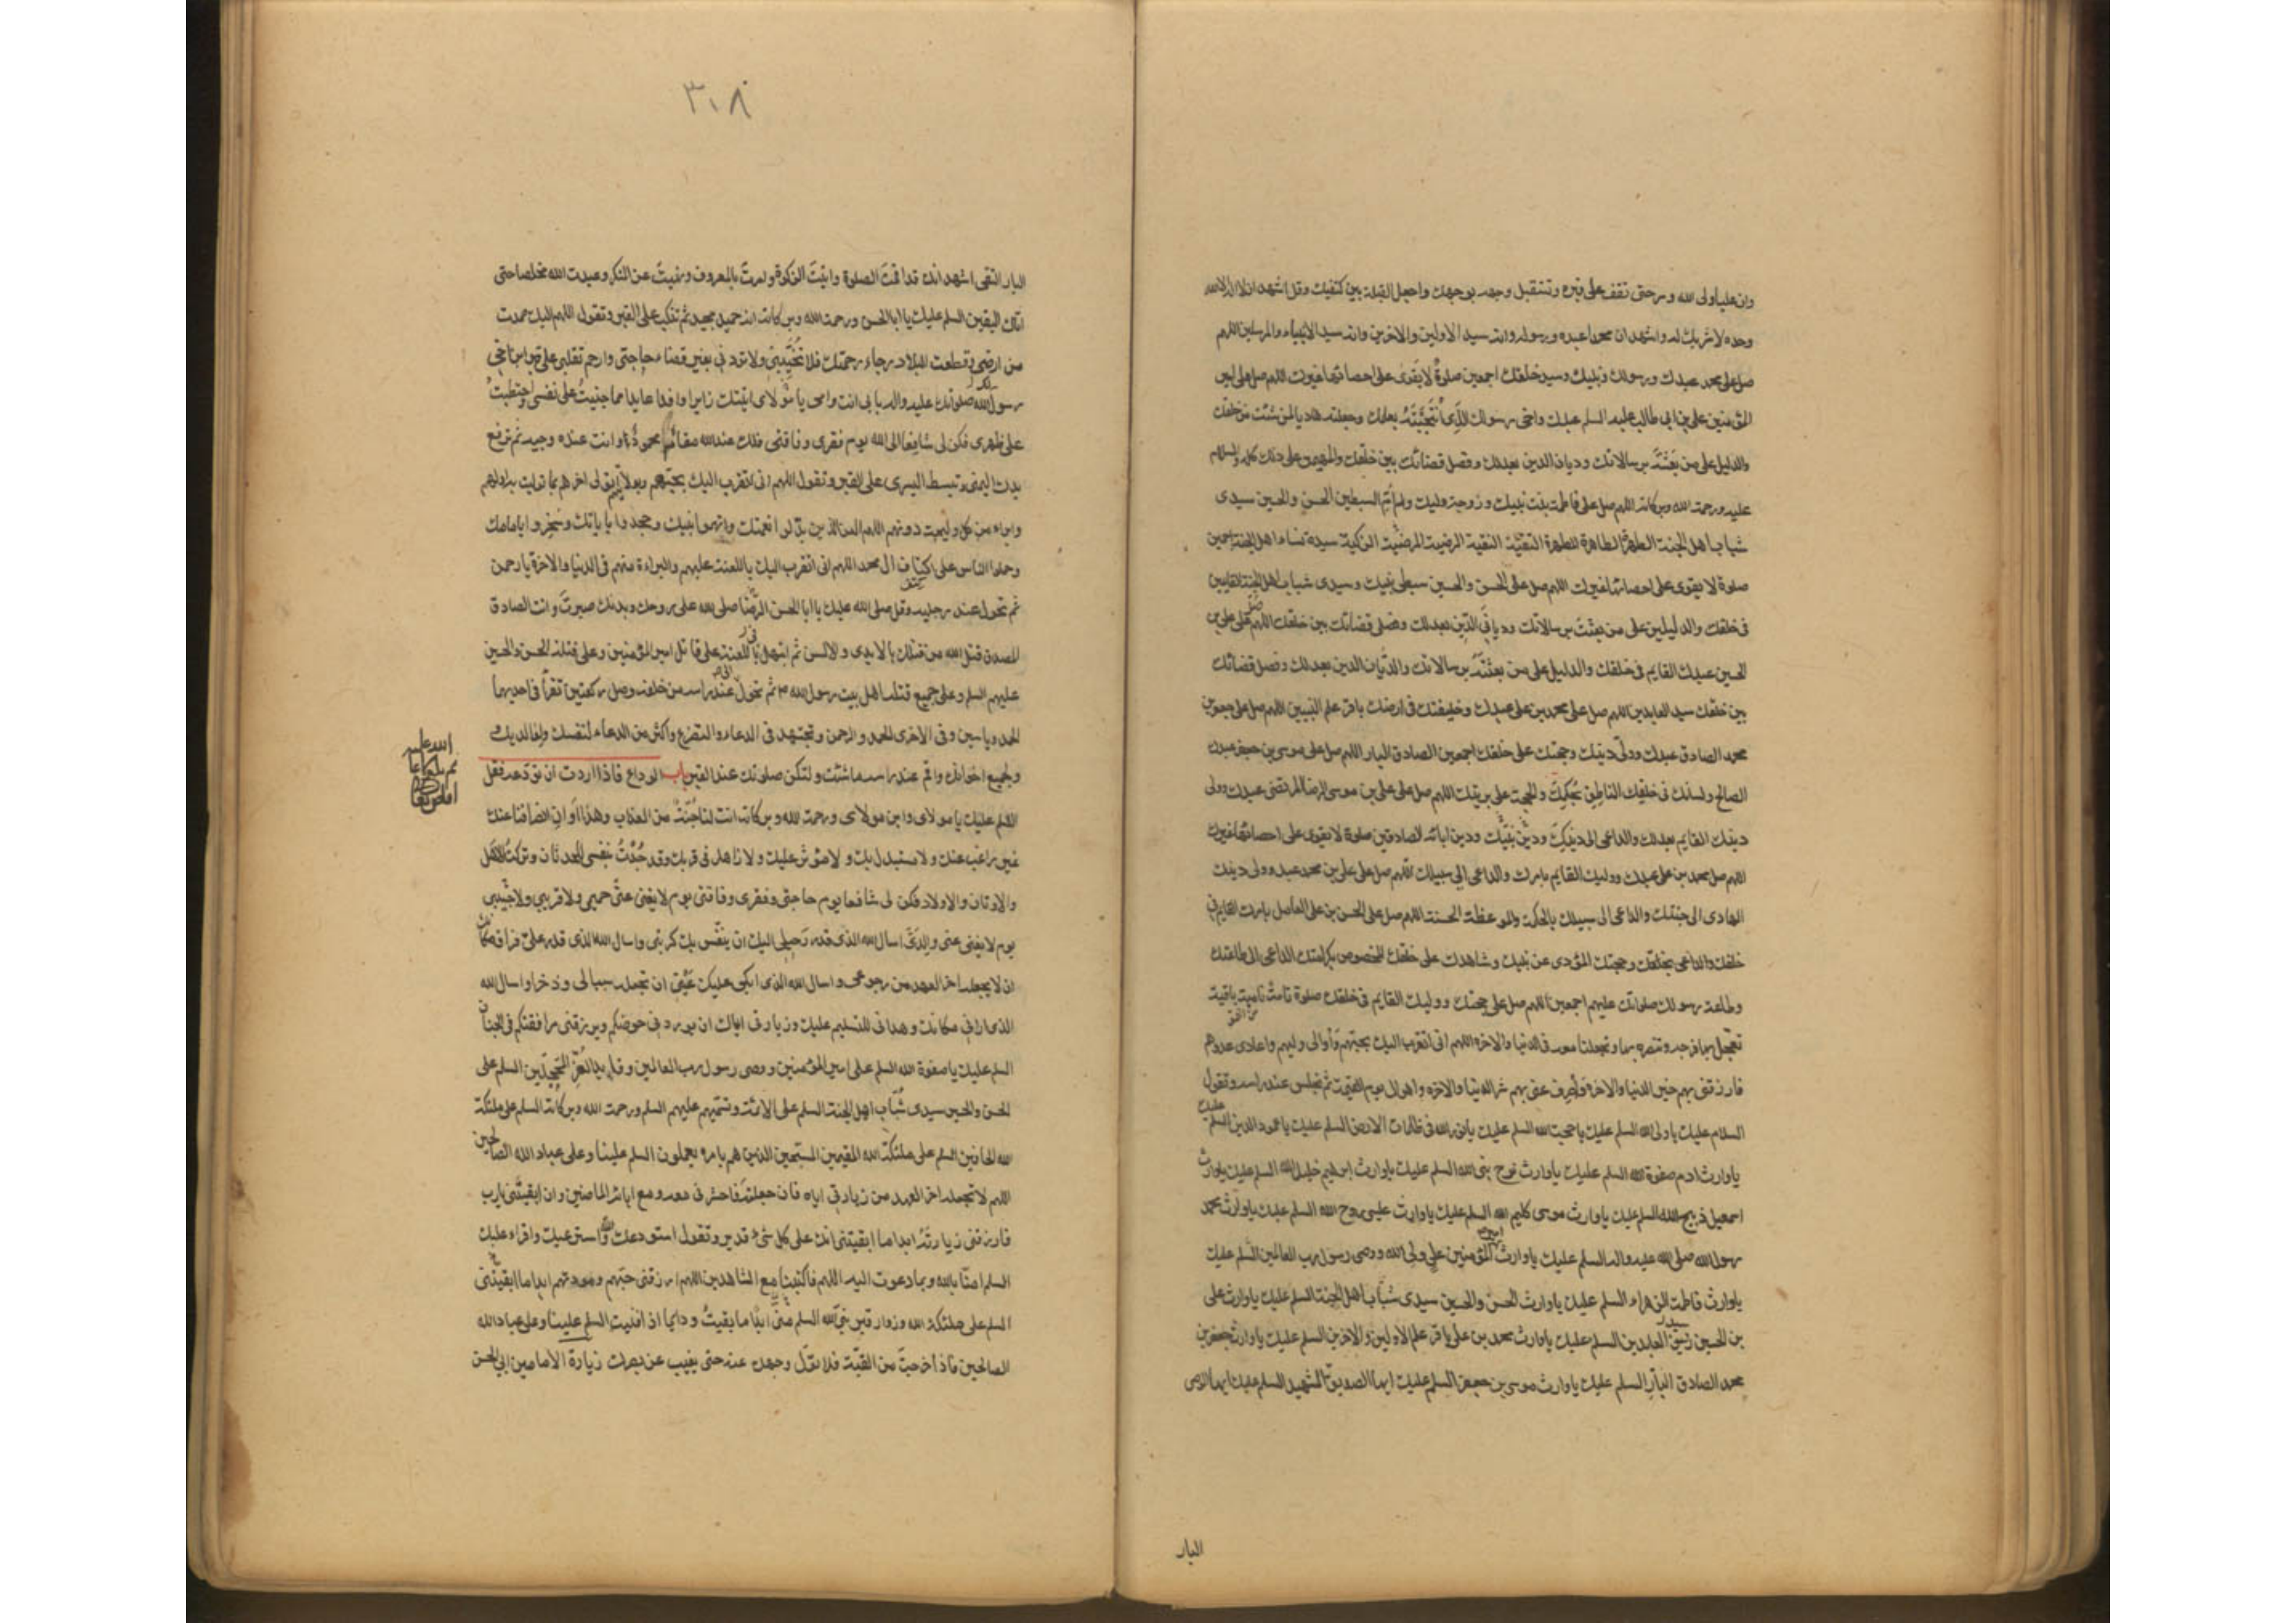 وان عليا ولى الله وسر حتى تقف على قبره وتستقبل وجهه بوجهك واجعل القبلة بين كتفيك وقل اشهد ان لا اله الا الله
وحده لا شريك له واشهد ان محمدا عبده ورسوله وانه سيد الاولين والاخرين وانه سيد الانبياء والمرسلين اللهم
صل على محمد عبدك ورسولك ونبيك وسيد خلقك اجمعين صلوةً لا يَقوَى على احصائها غيرك اللهم صل على امير
المؤمنين على بن ابى طالب عليه السلم عبدك واخى رسولك الذى انتجبته بعلمك وجعلته هاديا لمن شئت من خلقك
والدليل على من بعثته برسالاتك وديان الدين بعدلك وفصل قضائك بين خلقك والمهيمن على ذلك كله والسلام
عليه ورحمة الله وبركاته اللهم صل على فاطمة بنت نبيك وزوجة وليك وام السبطين الحسن والحسين سيدى
شباب اهل الجنة الطهرة الطاهرة المطهرة التقية النقية الرضية المرضية الزكية سيدة نساء اهل الجنة اجمعين
صلوة لا يقوى على احصائها غيرك اللهم صل على الحسن والحسين سبطى نبيك وسيدى شباب اهل الجنة القايمين
فى خلقك والدليلين على من بعثت برسالاتك وديانى الدين بعدلك وفصلى قضائك بين خلقك اللهم صل على على بن
الحسين عبدك القايم فى خلقك والدليل على من بعثته برسالاتك والديان الدين بعدلك وفصل قضائك
بين خلقك سيد العابدين اللهم صل على محمد بن على عبدك وخليفتك فى ارضك باقر علم النبيين اللهم صل على جعفر بن
محمد الصادق عبدك وولى دينك وحجتك على خلقك اجمعين الصادق البار اللهم صل على موسى بن جعفر عبدك
الصالح ولسانك فى خلقك الناطق بحكمك والحجة على بريتك اللهم صل على على بن موسى الرضا المرتضى عبدك وولى
دينك القايم بعدلك والداعى الى دينك ودين نبيك ودين ابائه الصادقين صلوة لا يقوى على احصائها غيرك
اللهم صل محمد بن على عبدك ووليك القايم بامرك والداعى الى سبيلك اللهم صل على على بن محمد عبدك وولى دينك
الهادى الى جنتك والداعى الى سبيلك بالحكمة والموعظة الحسنة اللهم صل على الحسن بن على العامل بامرك القايم فى
خلقك والداعى بخلقك وحجتك المؤدى عن نبيك وشاهدك على خلقك المخصوص بكرامتك الداعى الى طاعتك
وطاعة رسولك صلواتك عليهم اجمعين اللهم صل على حجتك ووليك القايم فى خلقك صلوة تامة نامية باقية
تعجل بها فرجه وتنصره بها وتجعلنا معه فى الدنيا والاخرة اللهم انى اتقرب اليك بحبهم واوالى وليهم واعادى عدوهم
فارزقنى بهم خير الدنيا والاخرة واصرف عنى بهم شر الدنيا والاخرة واهوال يوم القيمة ثم تجلس عند راسه وتقول
السلام عليك يا ولى الله السلم عليك يا حجة الله السلم عليك يا نور الله فى ظلمات الارض السلم عليك يا عمود الدين السلم عليك
يا وارث ادم صفوة الله السلم عليك يا وارث نوح نبى الله السلم عليك يا وارث ابرهيم خليل الله السلم عليك يا وارث
اسمعيل ذبيح الله السلم عليك يا وارث موسى كليم الله السلم عليك يا وارث عيسى روح الله السلم عليك يا وارث محمد
رسول الله صلى الله عليه واله السلم عليك يا وارث امير المؤمنين على ولى الله ووصى رسول رب العالمين السلم عليك
يا وارث فاطمة الزهراء السلم عليك يا وارث الحسن والحسين سيدى شباب اهل الجنة السلم عليك يا وارث على
بن الحسين زين العابدين السلم عليك يا وارث محمد بن على باقر علم الاولين والاخرين السلم عليك يا وارث جعفر بن
محمد الصادق البار السلم عليك يا وارث موسى بن جعفر السلم عليك ايها الصديق الشهيد السلم عليك ايها الوصى
البار
٣٠٨
البار التقى اشهد انك قد اقمت الصلوة واتيت الزكوة وامرت بالمعروف ونهيت عن المنكر وعبدت الله مخلصا حتى
اتاك اليقين السلم عليك يا ابا الحسن ورحمة الله وبركاته انه حميد مجيد ثم تنكب على القبر وتقول اللهم اليك صمدت
من ارضى وقطعت البلاد رجاء رحمتك فلا تخيبنى ولا تردنى بغير قضاء حاجتى وارحم تقلبى على قبر ابن اخى
رسولك صلواتك عليه واله بابى انت وامى يا مولاى اتيتك زايرا وافدا عايدا مما جنيت على نفسى واحتطبت
على ظهرى فكن لى شافعا الى الله يوم فقرى وفاقتى فلك عند الله مقام محمود وانت عنده وجيه ثم ترفع
يدك اليمنى وتبسط اليسرى على القبر وتقول اللهم انى اتقرب اليك بحبهم وبولايتهم اتولى اخرهم بما توليت به اولهم
وابراء من كل وليجة دونهم اللهم العن الذين بدلوا نعمتك واتهموا نبيك وجحدوا باياتك وسخروا بامامك
وحملوا الناس على اكتاف ال محمد اللهم انى اتقرب اليك باللعنة عليهم والبراءة منهم فى الدنيا والاخرة يا رحمن
ثم تحول عند رجليه وقل صلى الله عليك يا ابا الحسن الرضا صلى الله على روحك وبدنك صبرت وانت الصادق
المصدق قتل الله من قتلك بالايدى والالسن ثم ابتهل باللعنة على قاتل امير المؤمنين وعلى قتلة الحسن والحسين
عليهم السلم وعلى جميع قتلة اهل بيت رسول الله ثم تحول عند راسه من خلفه وصل ركعتين تقرأ فى احديهما
الحمد وياسين وفى الاخرى الحمد والرحمن وتجتهد فى الدعاء والتضرع واكثر من الدعاء لنفسك ولوالديك
ولجميع اخوانك واقم عند راسه ما شئت ولتكن صلوتك عند القبر باب الوداع فاذا اردت ان تودعه فقل
السلم عليك يا مولاى وابن مولاى ورحمة الله وبركاته انت لنا جنة من العذاب وهذا اوان انصرافنا عنك
غير راغب عنك ولا مستبدل بك ولا مؤثر عليك ولا زاهد فى قربك وقد جدت بنفسى للحدثان وتركت الاهل
والاوتان والاولاد فكن لى شافعا يوم حاجتى وفقرى وفاقتى يوم لا يغنى عنى حميمى ولا قريبى ولا حبيبى
يوم لا يغنى عنى والدى اسال الله الذى قدر رحيلى اليك ان ينفس بك كربتى واسال الله الذى قدر على فراق مكانك
ان لا يجعله اخر العهد من رجوعى واسال الله الذى ابكى عليك عينى ان تجعله سببا لى وذخرا واسال الله
الذى ارانى مكانك وهدانى للتسليم عليك وزيارتى اياك ان يوردنى حوضكم ويرزقنى مرافقتكم فى الجنان
السلم عليك يا صفوة الله السلم على امير المؤمنين ووصى رسول رب العالمين وقايد الغر المحجلين السلم على
الحسن والحسين سيدى شباب اهل الجنة السلم على الائمة وتسميهم عليهم السلم ورحمة الله وبركاته السلم على ملئكة
الله الحافين السلم على ملئكة الله المقيمين المسبحين الذين هم بامره يعملون السلم علينا وعلى عباد الله الصالحين
اللهم لا تجعله اخر العهد من زيارتى اياه فان جعلته فاحشرنى معه ومع ابائه الماضين وان ابقيتنى يا رب
فارزقنى زيارته ابدا ما ابقيتنى انك على كل شىء قدير وتقول استودعك الله واسترعيك واقراء عليك
السلم امنا بالله وبما دعوت اليه اللهم فاكتبنا مع الشاهدين اللهم ارزقنى حبهم ومودتهم ابدا ما ابقيتنى
السلم على ملئكة الله وزوار قبر نبى الله السلم منى ابدا ما بقيت ودايما اذا فنيت السلم علينا وعلى عباد الله
الصالحين فاذا خرجت من القبة فلا تول وجهك عنه حتى يغيب عن بصرك زيارة الامامين ابى الحسن